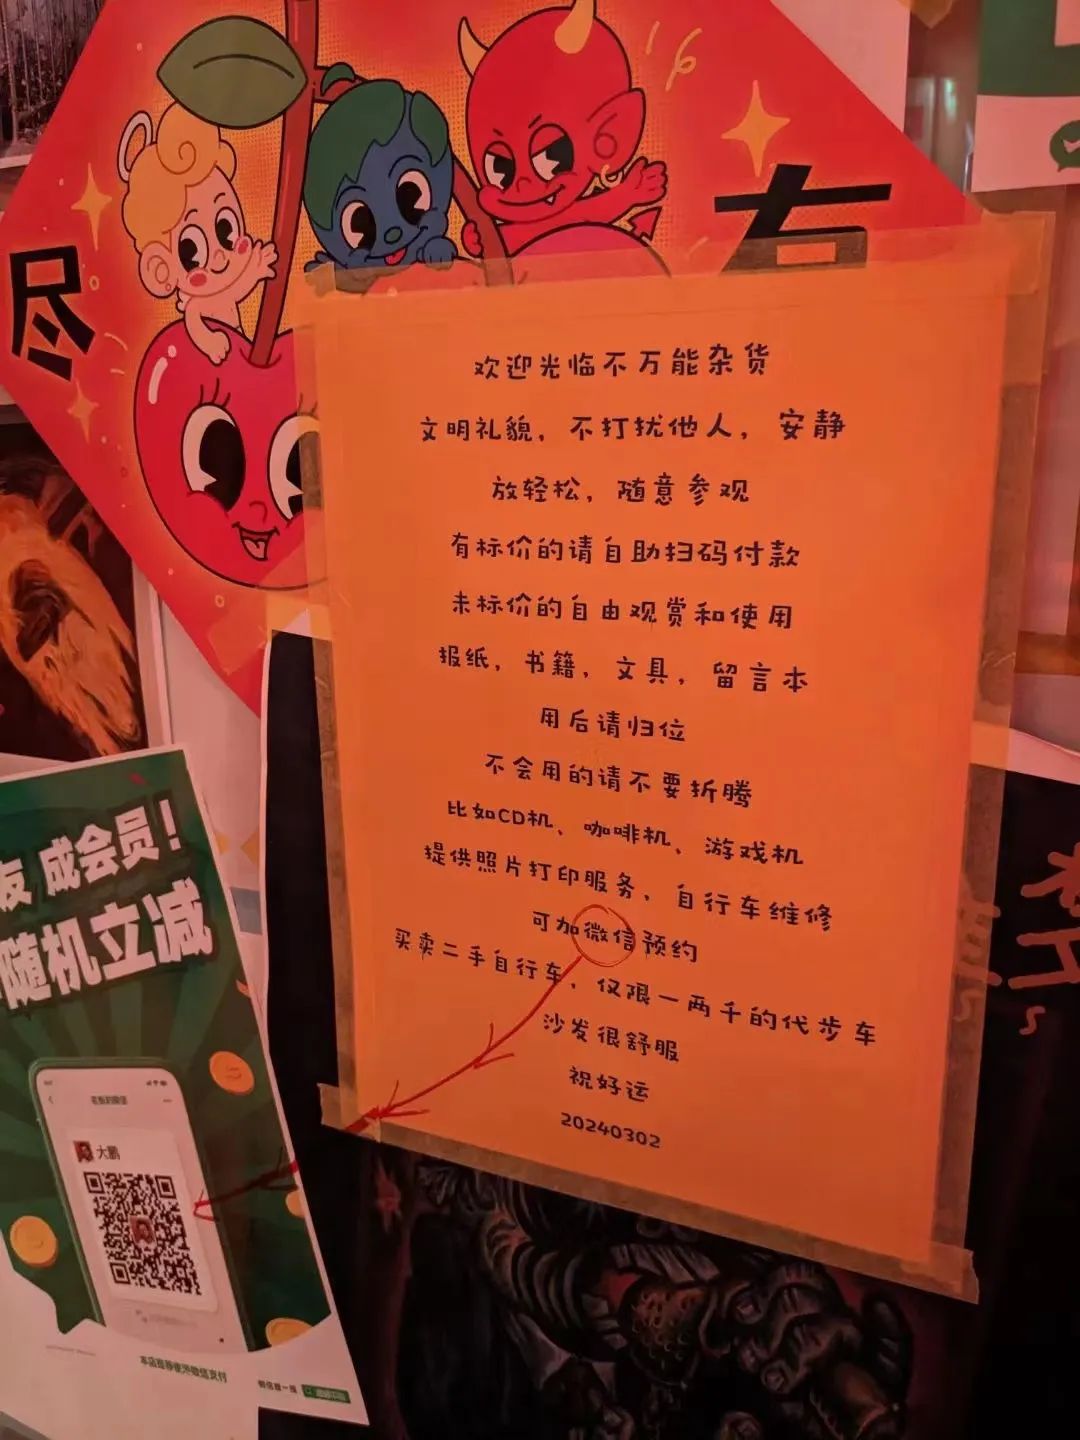 尽
有
欢迎光临不万能杂货
文明礼貌，不打扰他人，安静
放轻松，随意参观
有标价的请自助扫码付款
未标价的自由观赏和使用
报纸，书籍，文具，留言本
用后请归位
不会用的请不要折腾
比如CD机、咖啡机、游戏机
提供照片打印服务、自行车维修
可加微信预约
买卖二手自行车，仅限一两千的代步车
沙发很舒服
祝好运
20240302
友 成会员！
随机立减
大鹏
本店推荐使用微信支付